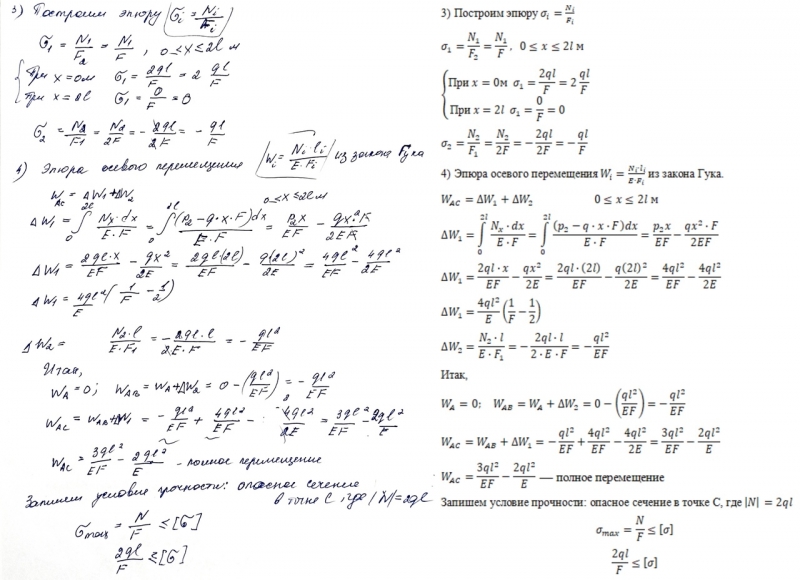 3) Построим эпюру σi = Ni/Fi
σ1 = N1/F2 = N1/F, 0 ≤ x ≤ 2l м
{ При x = 0м σ1 = 2ql/F = 2 ql/F
При x = 2l σ1 = 0/F = 0
σ2 = N2/F1 = N2/2F = − 2ql/2F = − ql/F
4) Эпюра осевого перемещения Wi = Ni·li/E·Fi из закона Гука
WAC = ΔW1 + ΔW2 0 ≤ x ≤ 2l м
ΔW1 = ∫₀²ˡ Nx·dx/E·F = ∫₀²ˡ (P2 − q·x·F)dx/E·F = P2x/EF − qx²·F/2EF
ΔW1 = 2ql·x/EF − qx²/2E = 2ql(2l)/EF − q(2l)²/2E = 4ql²/EF − 4ql²/2E
ΔW1 = 4ql²/E (1/F − 1/2)
ΔW2 = N2·l/E·F1 = − 2ql·l/2·E·F = − ql²/EF
Итак,
WA = 0; WAB = WA + ΔW2 = 0 − (ql²/EF) = − ql²/EF
WAC = WAB + ΔW1 = − ql²/EF + 4ql²/EF − 4ql²/2E = 3ql²/EF − 2ql²/E
WAC = 3ql²/EF − 2ql²/E - полное перемещение
Запишем условие прочности: опасное сечение
в точке C, где |N| = 2ql
σmax = N/F ≤ [σ]
2ql/F ≤ [σ]
3) Построим эпюру σi = Ni/Fi
σ1 = N1/F2 = N1/F. 0 ≤ x ≤ 2l м
{ При x = 0м σ1 = 2ql/F = 2 ql/F
При x = 2l σ1 = 0/F = 0
σ2 = N2/F1 = N2/2F = − 2ql/2F = − ql/F
4) Эпюра осевого перемещения Wi = Ni·li/E·Fi из закона Гука.
WAC = ΔW1 + ΔW2 0 ≤ x ≤ 2l м
ΔW1 = ∫₀²ˡ Nx·dx/E·F = ∫₀²ˡ (p2 − q·x·F)dx/E·F = p2x/EF − qx²·F/2EF
ΔW1 = 2ql·x/EF − qx²/2E = 2ql·(2l)/EF − q(2l)²/2E = 4ql²/EF − 4ql²/2E
ΔW1 = 4ql²/E (1/F − 1/2)
ΔW2 = N2·l/E·F1 = − 2ql·l/2·E·F = − ql²/EF
Итак,
WA = 0; WAB = WA + ΔW2 = 0 − (ql²/EF) = − ql²/EF
WAC = WAB + ΔW1 = − ql²/EF + 4ql²/EF − 4ql²/2E = 3ql²/EF − 2ql²/E
WAC = 3ql²/EF − 2ql²/E — полное перемещение
Запишем условие прочности: опасное сечение в точке С, где |N| = 2ql
σmax = N/F ≤ [σ]
2ql/F ≤ [σ]